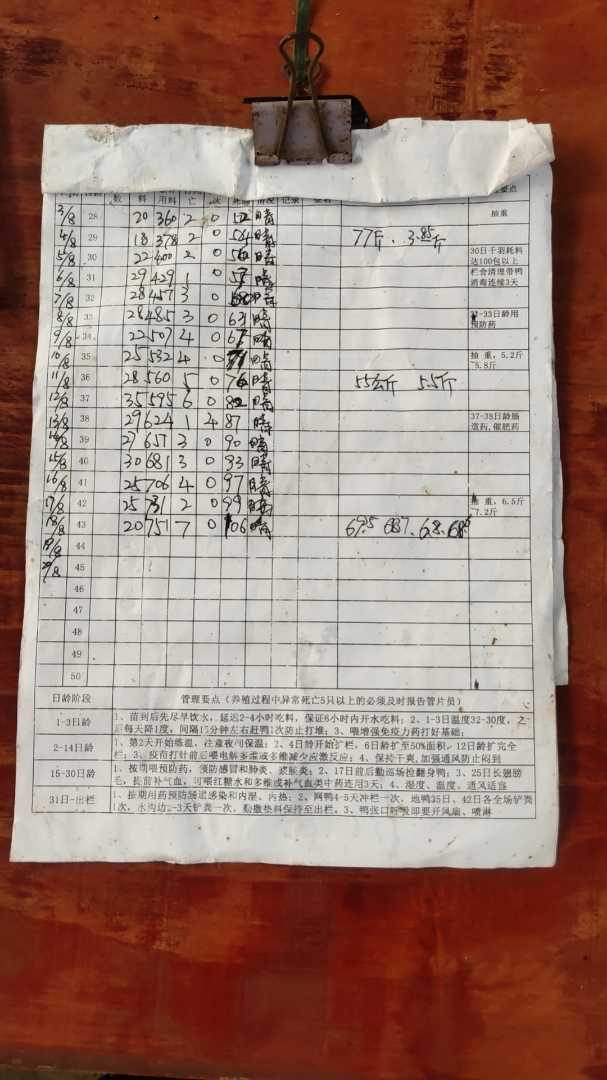 数 料 用料 亡 次 死淘 情况 记录 要点
3/8 28 20 360 2 0 52 晴 抽重
4/8 29 18 378 2 0 54 晴 77斤、3.85斤
5/8 30 22 400 2 0 56 晴 30日千羽耗料达100包以上
6/8 31 29 429 1 0 57 晴 栏舍清理带鸭消毒连续3天
7/8 32 28 457 3 0
8/8 33 28 485 3 0 63 晴 32-33日龄用预防药
9/8 34 22 507 4 0 67 晴
10/8 35 25 532 4 0 71 晴 抽重，5.2斤-5.8斤
11/8 36 28 560 5 0 76 晴 55公斤 5.5斤
12/8 37 35 595 6 0 82 晴
13/8 38 29 624 1 4 87 晴 37-38日龄肠道药、催肥药
14/8 39 657 3 0 90 晴
15/8 40 30 681 3 0 93 晴
16/8 41 25 706 4 0 97 晴
17/8 42 25 731 2 0 99 晴 重，6.5斤-7.2斤
18/8 43 20 751 7 0 106 晴 69.5 687、68、
19/8 44
20/8 45
46
47
48
49
50
日龄阶段 管理要点（养殖过程中异常死亡5只以上的必须及时报告管片员）
1-3日龄 1、苗到后先尽早饮水，延迟2-4小时吃料，保证6小时内开水吃料；2、1-3日温度32-30度，之
后每天降1度，间隔15分钟左右赶鸭1次防止打堆；3、喂增强免疫力药打好基础；
2-14日龄 1、第2天开始练温，注意夜间保温；2、4日龄开始扩栏，6日龄扩至50%面积，12日龄扩完全
栏；3、疫苗打针前后喂电解多或多维减少应激反应；4、保持干爽，加强通风防止闷到
15-30日龄 1、按期喂预防药，预防感冒和肺炎、浆膜炎；2、17日前后勤巡场捡翻身鸭；3、25日长翅膀
毛，长前补气血，可喂红糖水和多维或补气血类中药连用3天；4、湿度、温度、通风适宜
31日-出栏 1、按期用药预防肠道感染和内湿、内热；2、网鸭4-5天冲栏一次，地鸭35日、42日各全场铲粪
1次，水沟边2-3天铲粪一次，勤撒垫料保持至出栏。3、鸭张口呼吸即要开风扇、喷淋